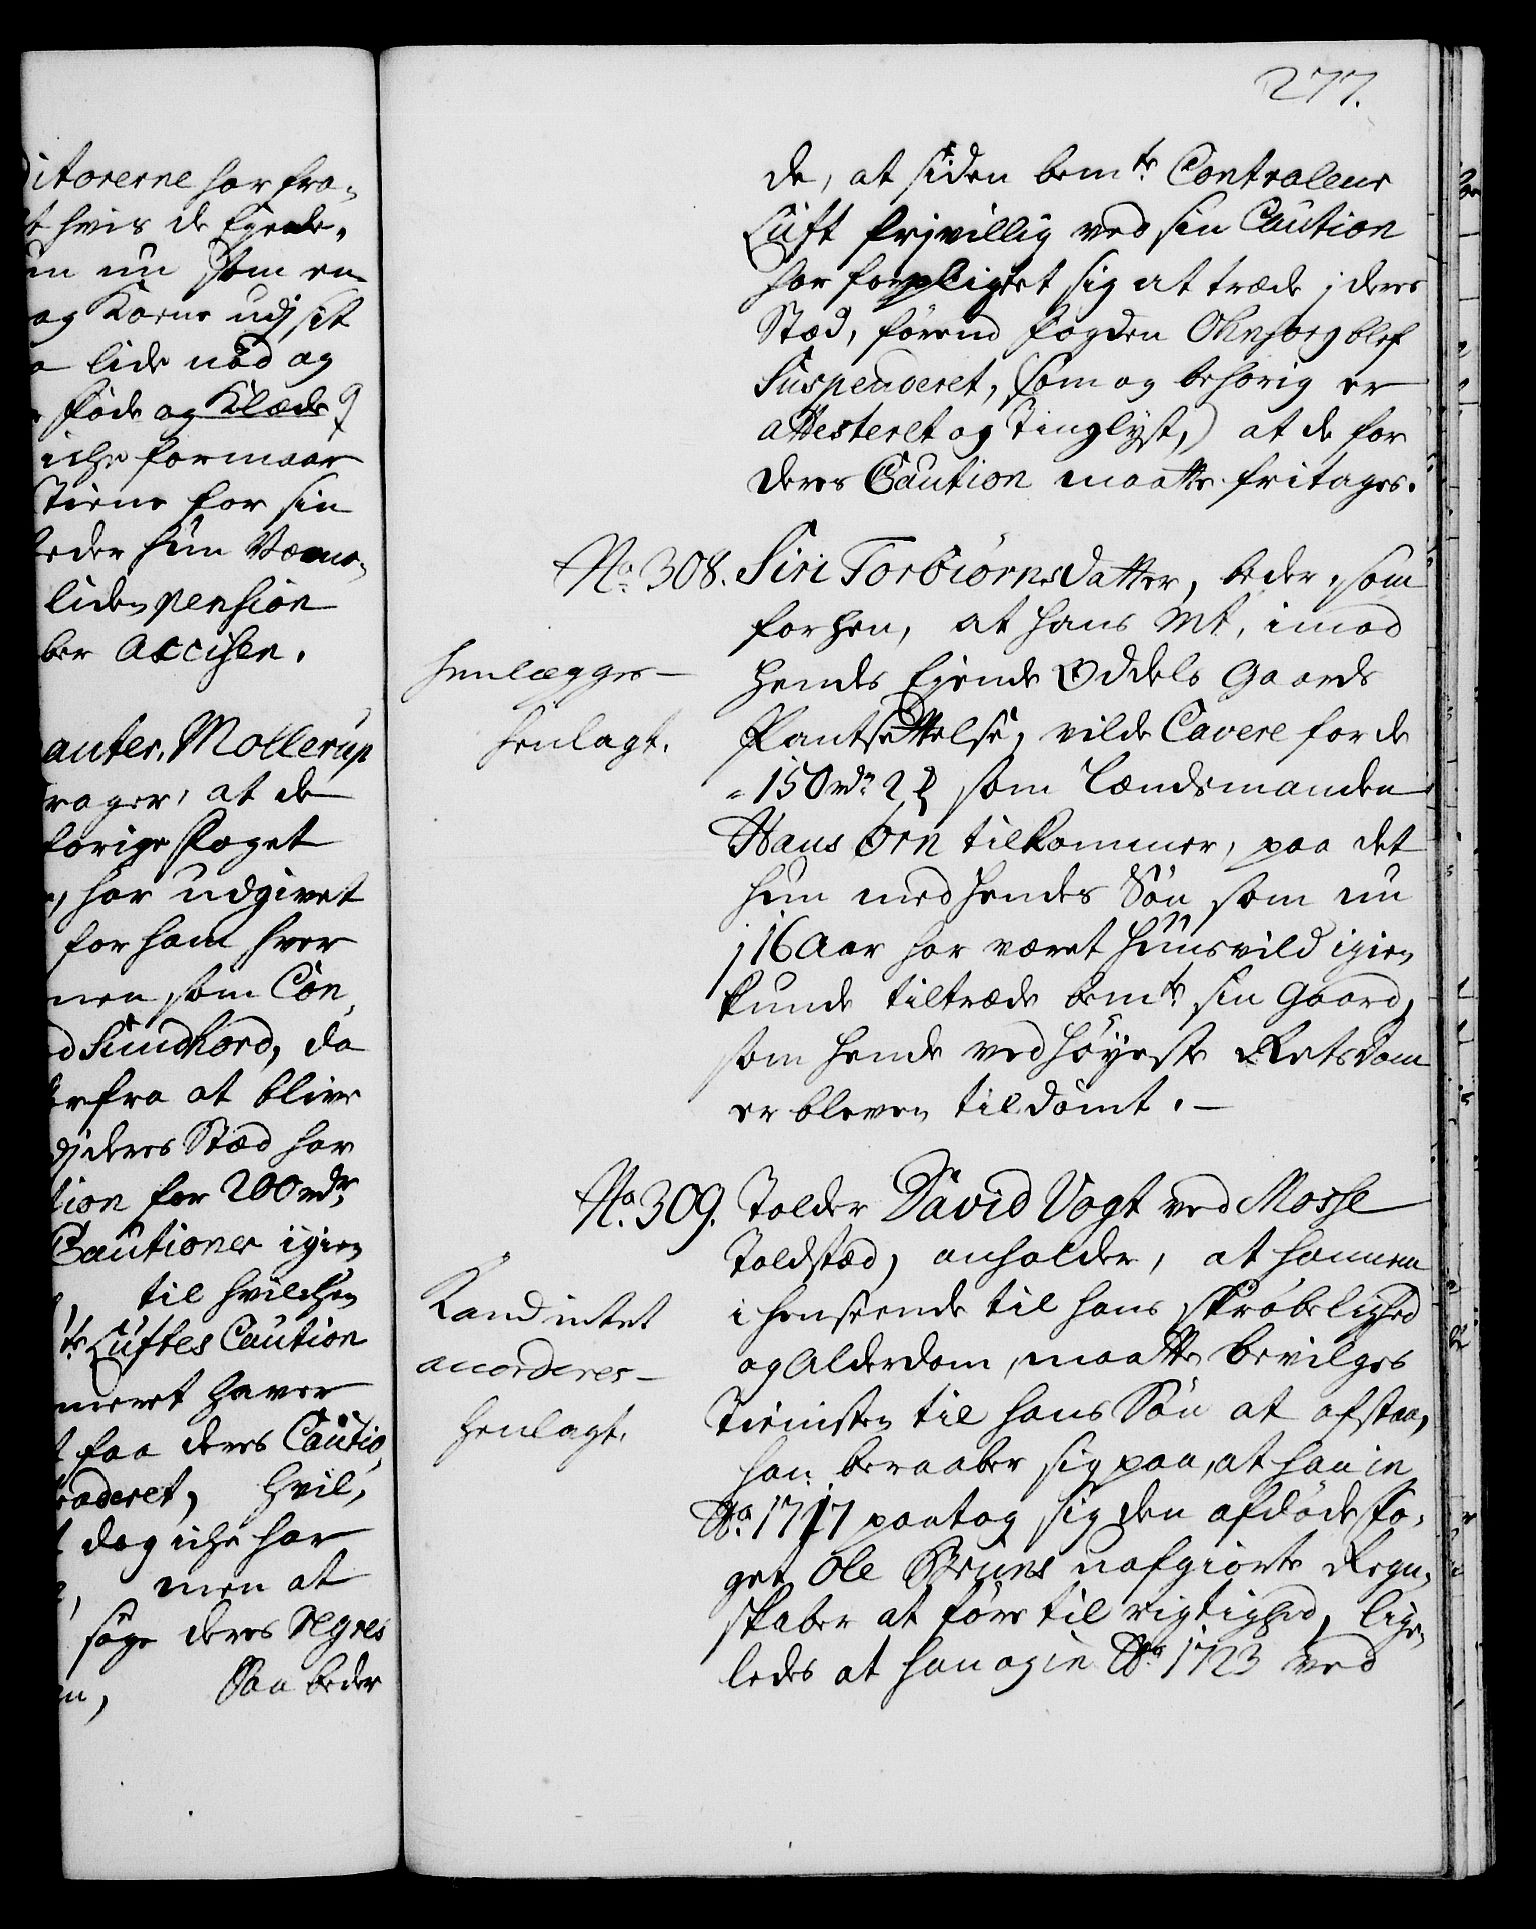 277.
de, at siden bem.te Controleur
Lüft frivillig ved sin Caution
har forpligtet sig at træde i deres
Stæd, förend fogden Ohnsorg blef
Suspenderet, (som og behörig er
attesteret og Tinglyst,) at de for
deres Caution maatte fritages.
No. 308. Siri Torbiörnsdatter, beder, som
forhen, at Hans Mt. imod
hendes Eyende Oddels Gaards
Pantsættelse, vilde Cavere for de
150 rdr. 2 ß som Lændsmanden
Hans Örn tilkommer, paa det
hun med hendes Sön som nu
j 16 Aar har været huusvild igien
kunde tiltræde bem.te sin Gaard,
som hende ved höyeste Rets Dom
er bleven tildömt. –
henlægges –
henlagt.
No. 309. Tolder David Vogt ved Mosse
Toldstæd, anholder, at hannem
i henseende til hans skröbelighed
og Alderdom, maatte bevilges
Tienisten til hans Sön at afstaa,
han beraaber sig paa, at han in
Ao. 1717 paatog sig den afdöde Fo-
get Ole Bruns uafgiorte Regn-
skaber at före til rigtighed, lige-
ledes at han og in Ao. 1723 ved
Kand intet
accorderes –
henlagt.
itorerne har fra-
t hvis de Eyende,
un nu som en
og Korne udj sit
lide nöd og
föde og Klæde
iche formaar
Tiene for sin
beder hun
liden pension
ber Accisen.
auter. Mollerup
rager, at de
forige Foget
, har udgivet
for ham hver
men som Con-
d Sundhord, da
erfra at blive
dj deres Stæd har
tion for 200 rdr.
Cautioner igien
til hvilchen
te Lüftes Caution
meret haver
t faa deres Cautio-
raderet, hvil-
t dog iche har
, men at
söge deres Regres
en, Saa beder